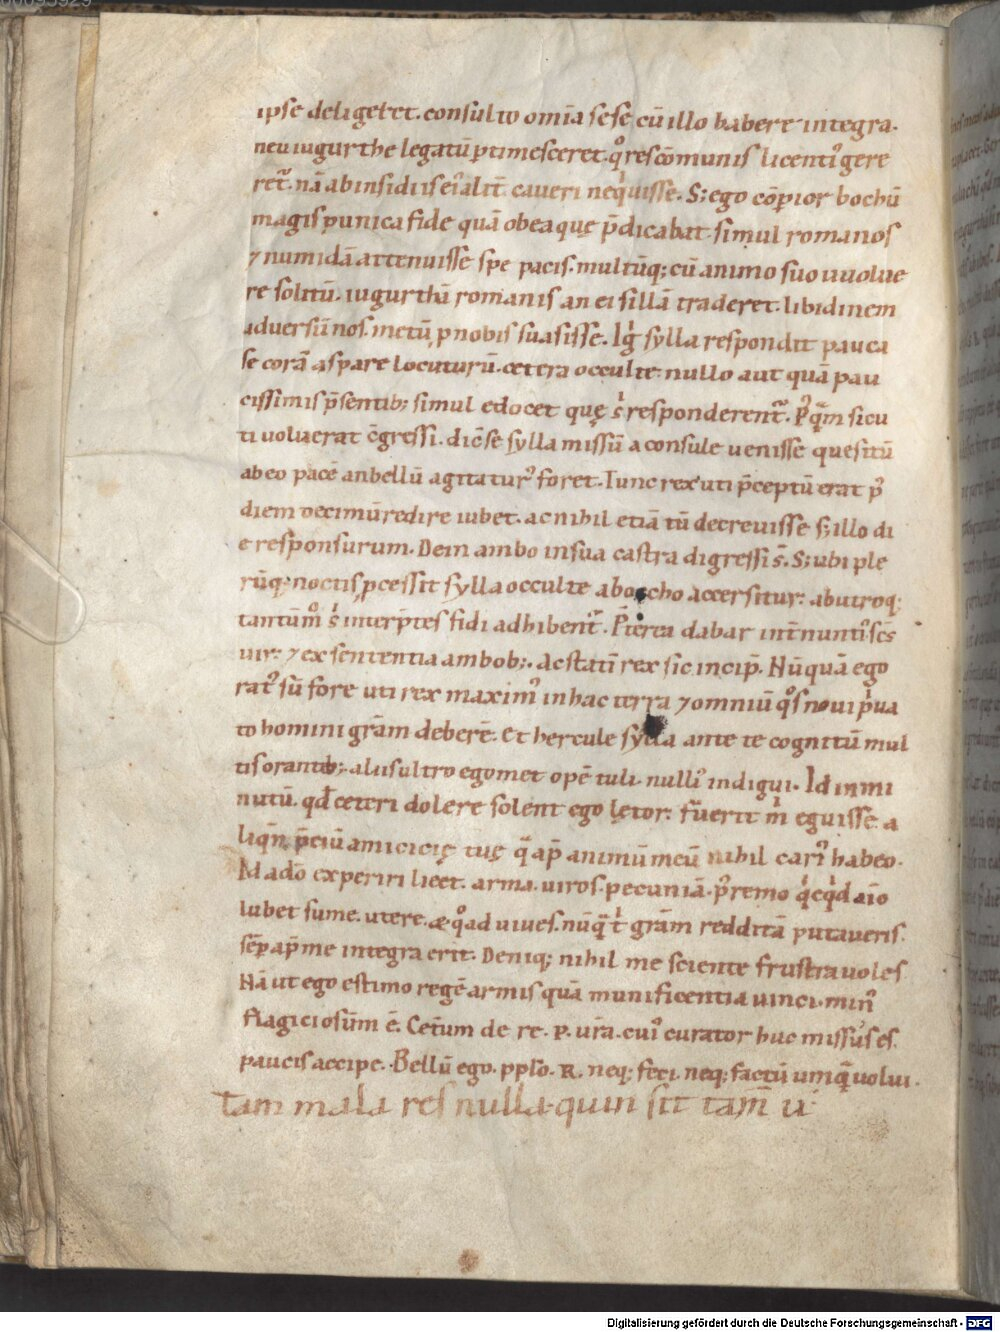 00095929
ipse deligeret. consulto om̄ia sese cū illo habere integra.
neu iugurthe legatū ptimesceret. q̊ res cōmunis licenti᾽ gere
ret᷑. nā ab insidiis ei᾽ alit̄ caveri neq̇uisse. S; ego cōp̄ior bochū
magis punica fide quā ob ea quę p̄dicabat. simul romanos
⁊ numidā attenuisse spe pacis. multūq; cū animo suo uuolue
re solitū. iugurthā romanis an ei sillā traderet. libidinem
adversū nos. metū p nobis suasisse. Igͥ sylla respondit pauca
se corā aspare locuturū. cetera occulte. nullo aut quā pau
cissimis p̄sentib; simul edocet quę s̄ responderent᷑. P᷒q̄m sicu
ti voluerat c̄gressi. dic̄se sylla missū a consule uenisse quesitū
ab eo pacē an bellū agitatur᾽ foret. Tunc rex uti p̄ceptū erat p᷒
diem decimū redire iubet. ac nihil etiā tū decrevisse s; illo di
e responsurum. Dein ambo in sua castra digressi s̄. S; ubi ple
rūq; noctis pcessit sylla occulte a boccho accersitur. ab utroq;
tantūm̊ s̄ interp̄tes fidi adhibent᷑. P̄terea dabar int̄nunti᾽ sc̄s
uir. ⁊ ex sententia ambob;. Ac statī rex sic incip̄. Nūquā ego
rat᾽ sū fore uti rex maxim᾽ in hac terra ⁊ omniū q̊s novi ṗua
to homini gr̄am deberē. Et hercule sylla ante te cognitū mul
tis orantib;. aliis ultro egomet opē tuli. nulli᾽ indigui. Id inmi
nutū. qd̄ ceteri dolere solent ego lętor. fūerit m̄ eguisse a
liqn̄ p̄ciū amicicię tuę q̄ ap̄ animū meū nihil cari᾽ habeo.
Id adō experiri licet. arma. viros. pecuniā. p᷒remo q̇cq̇d aīo
lubet sume. utere. & q̊ad vives. nūq̄ t̄ gr̄am redditā putaveris.
sēp ap̄ me integra erit. Deniq; nihil me sciente frustra voles
Nā ut ego estimo regē armis quā munificentia vinci. min᾽
flagiciosūm ē. Cet̄um de re. p. ur̄a. cui᾽ curator huc missus es.
paucis accipe. Bellū ego. pplo. R. neq; feci. neq; factū umq̄ uolui.
Tam mala res nulla. quin sit tam̄ u
Digitalisierung gefördert durch die Deutsche Forschungsgemeinschaft - DFG